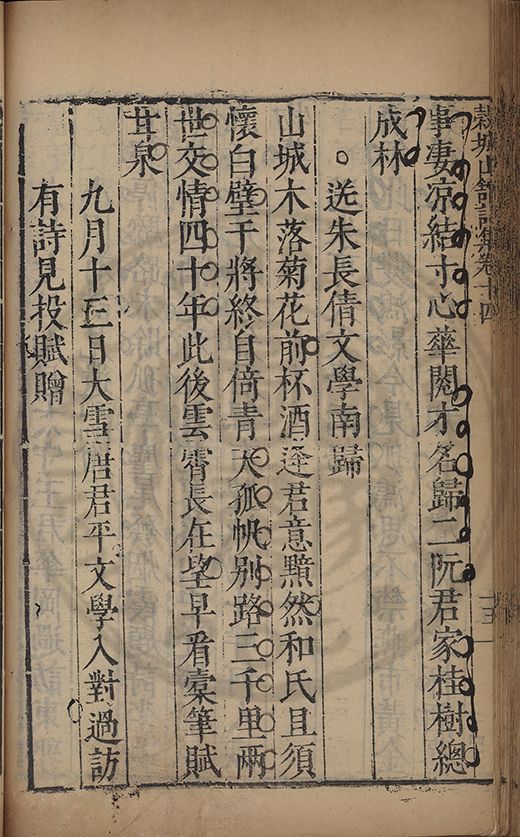 穀城山館詩集卷十四
事凄凉結寸心華閥才名歸二阮君家桂樹總
成林
送朱長倩文學南歸
山城木落菊花前杯酒逢君意黯然和氏且須
懷白璧干將終自倚青天孤帆别路三千里兩
世交情四十年此後雲霄長在望早看橐筆賦
甘泉
九月十三日大雪唐君平文學入對過訪
有詩見投賦贈